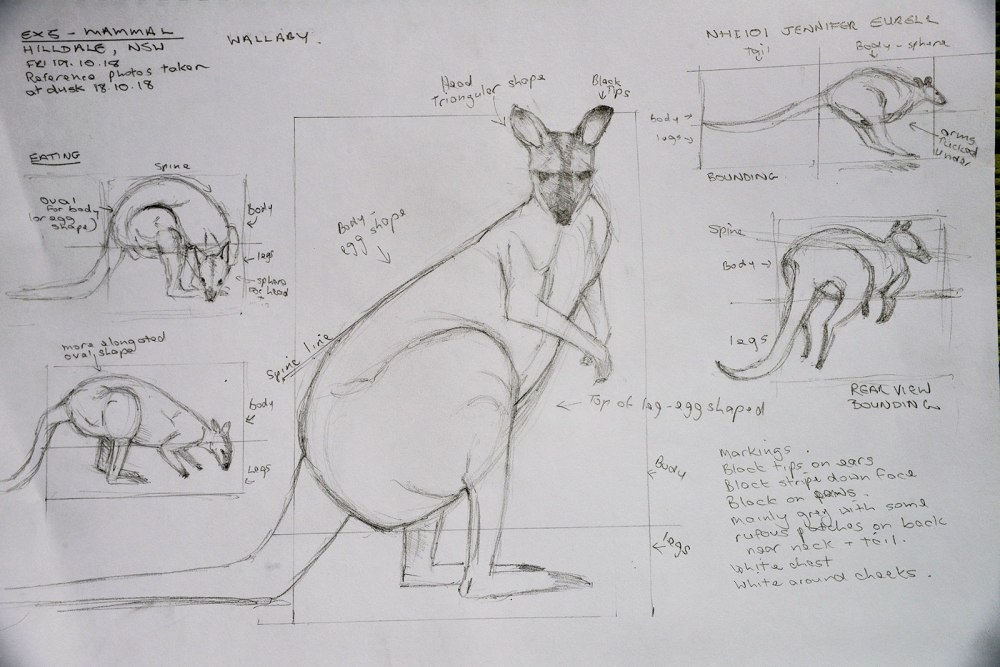 EX5 - MAMMAL
HILLDALE, NSW
FRI 19.10.18
Reference photos taken
at dusk 18.10.18
WALLABY.
NHI101 JENNIFER EURELL
tail
Body - sphere
Body →
legs →
arms
tucked
under
BOUNDING
Head
triangular shape
Black
tips
EATING
Spine
oval
for body
(or egg
shape)
Body
legs
sphere
for head
Body -
egg shape
Spine
Body →
legs
REAR VIEW
BOUNDING
more elongated
oval shape
Body
Legs
Spine line
← Top of leg - egg shaped
Body
legs
Markings.
Black tips on ears
Black stripe down face
Black on paws.
mainly grey with some
rufous patches on back
near neck + tail.
White chest
White around cheeks.